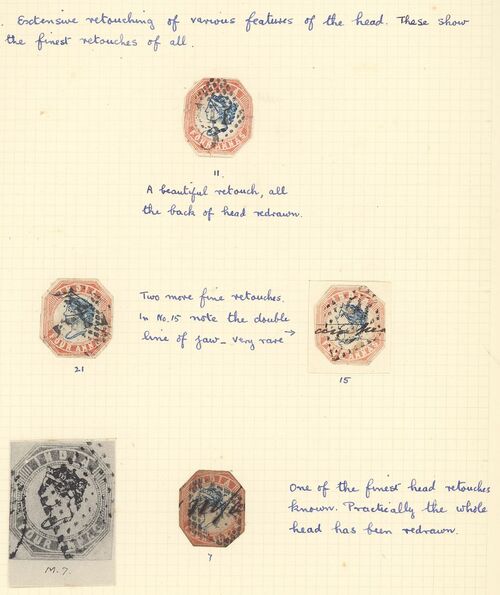 Extensive retouching of various features of the head. These show
the finest retouches of all.
INDIA
FOUR ANNAS
11
A beautiful retouch, all
the back of head redrawn.
INDIA
FOUR ANNAS
21
Two more fine retouches.
In No.15 note the double
line of jaw - very rare →
INDIA
FOUR ANNAS
15
INDIA
FOUR ANNAS
M.7.
INDIA
7
One of the finest head retouches
known. Practically the whole
head has been redrawn.